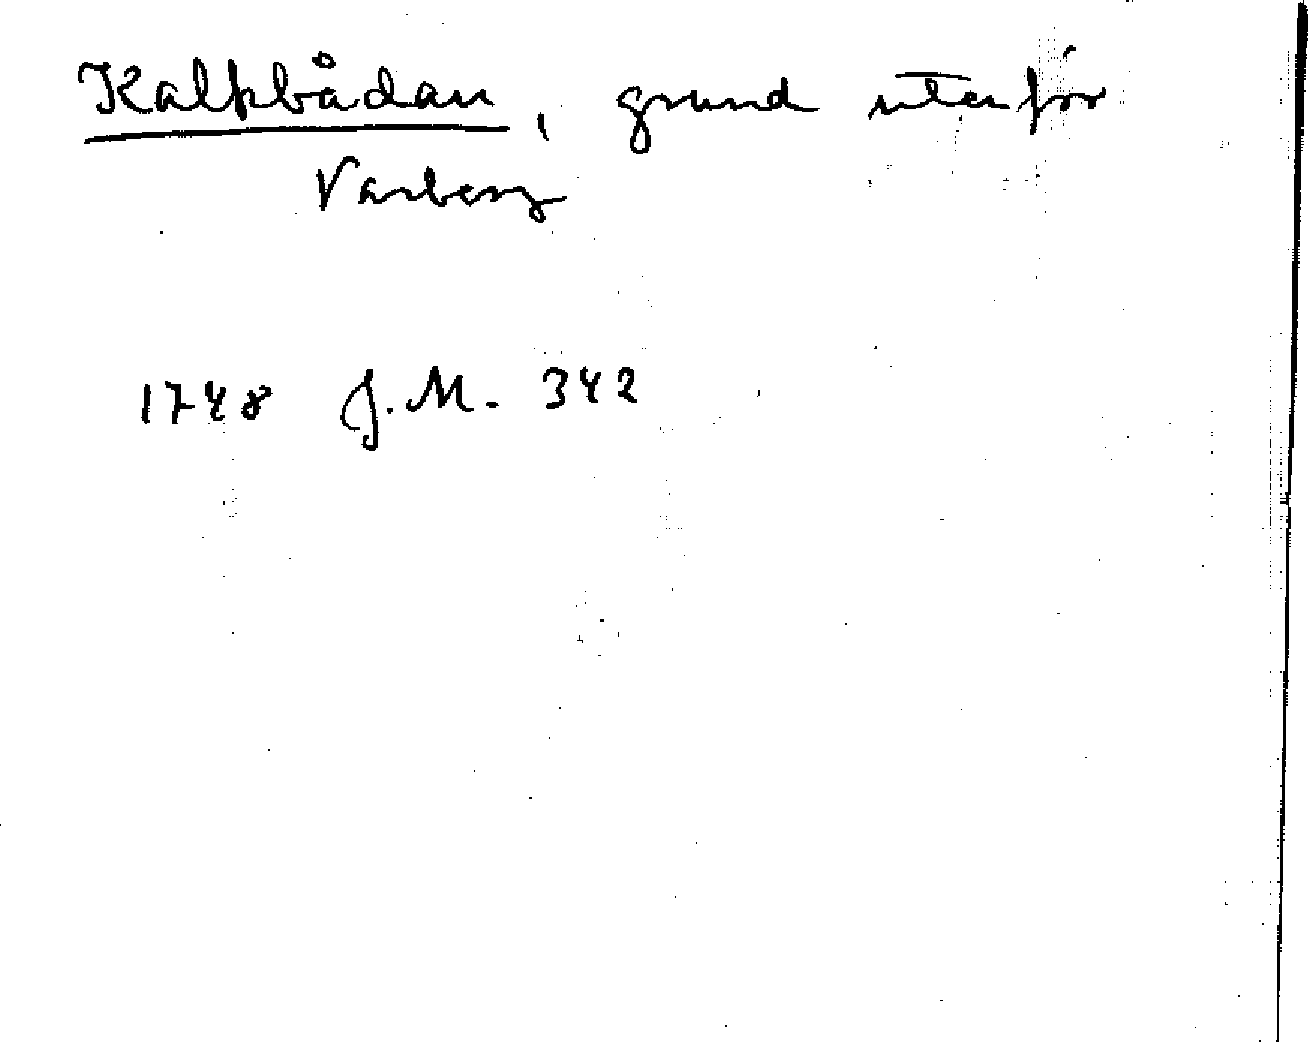 Kalkbådan, grund utanför
Varberg
1748 J.M. 342